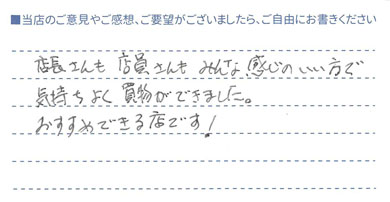 ■当店のご意見やご感想、ご要望がございましたら、ご自由にお書きください
店長さんも店員さんもみんな感じのいい方で
気持ちよく買物ができました。
おすすめできる店です!